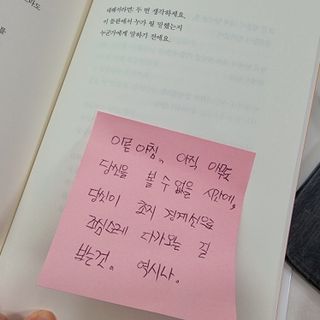 대해서라면: 두 번 생각하세요.
이 틈판에서 누가 뭘 말했는지
누군가에게 말하기 전에요.
이른 아침, 아직 아무도
당신을 볼 수 없을 시간에,
당신이 초지 경계선으로
조심스레 다가오는 걸
보는 것. 역시나.